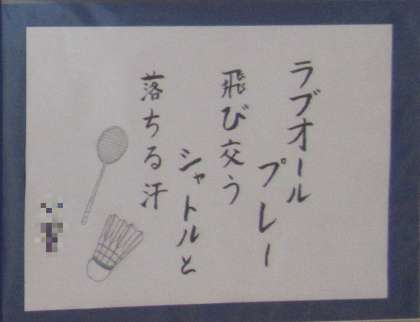 ラブオール
プレー
飛び交う
シャトルと
落ちる汗